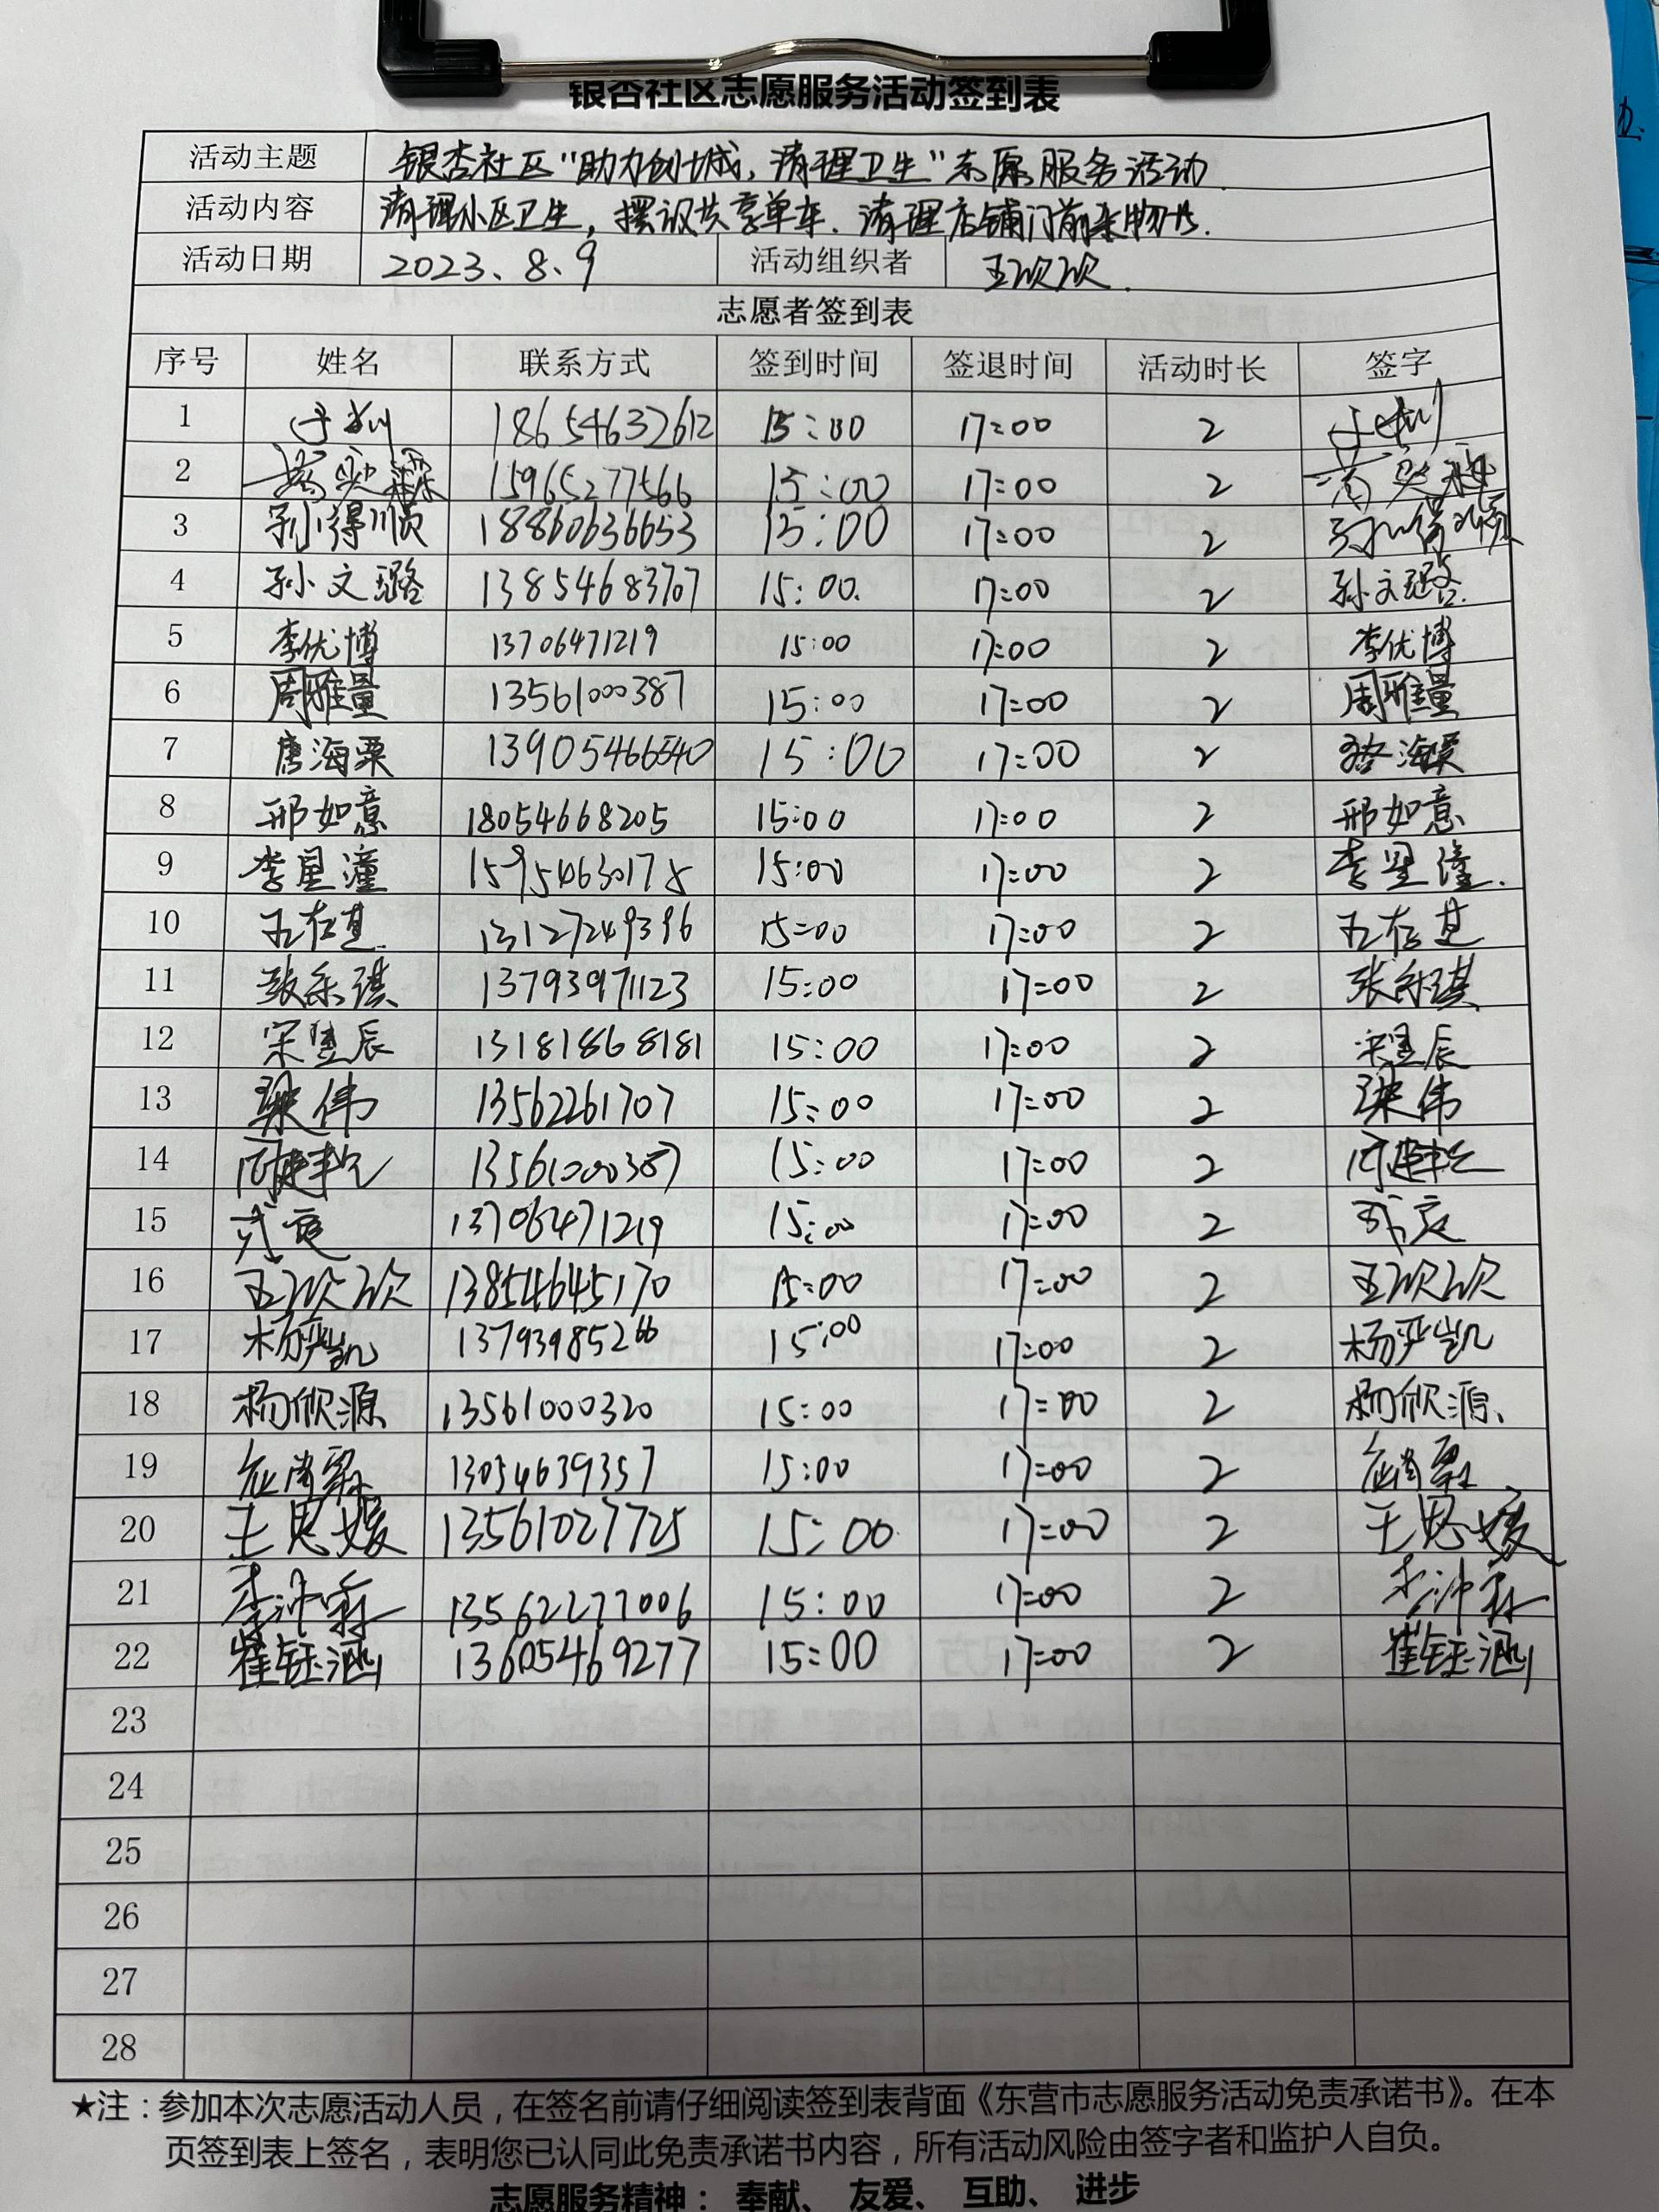 银杏社区志愿服务活动签到表
活动主题 银杏社区“助力创城，清理卫生”志愿服务活动.
活动内容 清理小区卫生，摆设共享单车.清理店铺门前杂物等.
活动日期 2023.8.9 活动组织者 王欣欣.
志愿者签到表
序号 姓名 联系方式 签到时间 签退时间 活动时长 签字
1 18654632612 15:00 17:00 2
2 15965277566 15:00 17:00 2
3 孙得顺 18860636653 15:00 17:00 2 孙得顺
4 孙文璐 13854683707 15:00. 17:00 2 孙文璐.
5 李优博 13706471219 15:00 17:00 2 李优博
6 周雅量 13561000387 15:00 17:00 2 周雅量
7 唐海粟 13905466540 15:00 17:00 2 唐海粟
8 邢如意 18054668205 15:00 17:00 2 邢如意
9 李星潼 15954630175 15:00 17:00 2 李星潼.
10 王存基 13127249396 15:00 17:00 2 王存基
11 张乐琪 13793971123 15:00 17:00 2 张乐琪
12 宋昱辰 13181868181 15:00 17:00 2 宋昱辰
13 梁伟 13562261707 15:00 17:00 2 梁伟
14 13561000387 15:00 17:00 2
15 13706471219 15:00 17:00 2
16 王欣欣 13854645170 15:00 17:00 2 王欣欣
17 杨严凯 13793985266 15:00 17:00 2 杨严凯
18 杨欣源 13561000320 15:00 17:00 2 杨欣源、
19 13054639357 15:00 17:00 2
20 王思媛 13561027725 15:00 17:00 2 王思媛
21 13562277006 15:00 17:00 2
22 崔钰涵 13605469277 15:00 17:00 2 崔钰涵
23
24
25
26
27
28
★注：参加本次志愿活动人员，在签名前请仔细阅读签到表背面《东营市志愿服务活动免责承诺书》。在本
页签到表上签名，表明您已认同此免责承诺书内容，所有活动风险由签字者和监护人自负。
志愿服务精神： 奉献、 友爱、 互助、 进步